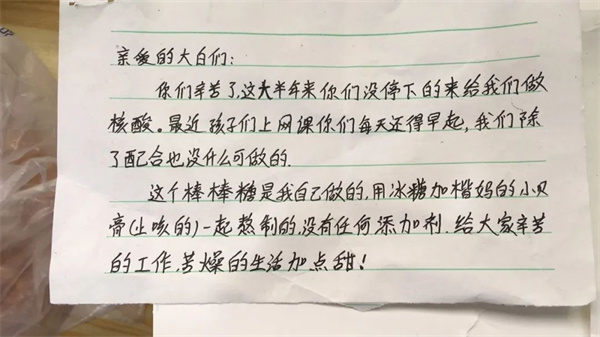 亲爱的大白们:
你们辛苦了,这大半年来你们没停下的来给我们做
核酸。最近孩子们上网课你们每天还得早起,我们除
了配合也没什么可做的.
这个棒棒糖是我自己做的,用冰糖加楷妈的小贝
膏(止咳的)一起熬制的,没有任何添加剂.给大家辛苦
的工作,苦燥的生活加点甜!